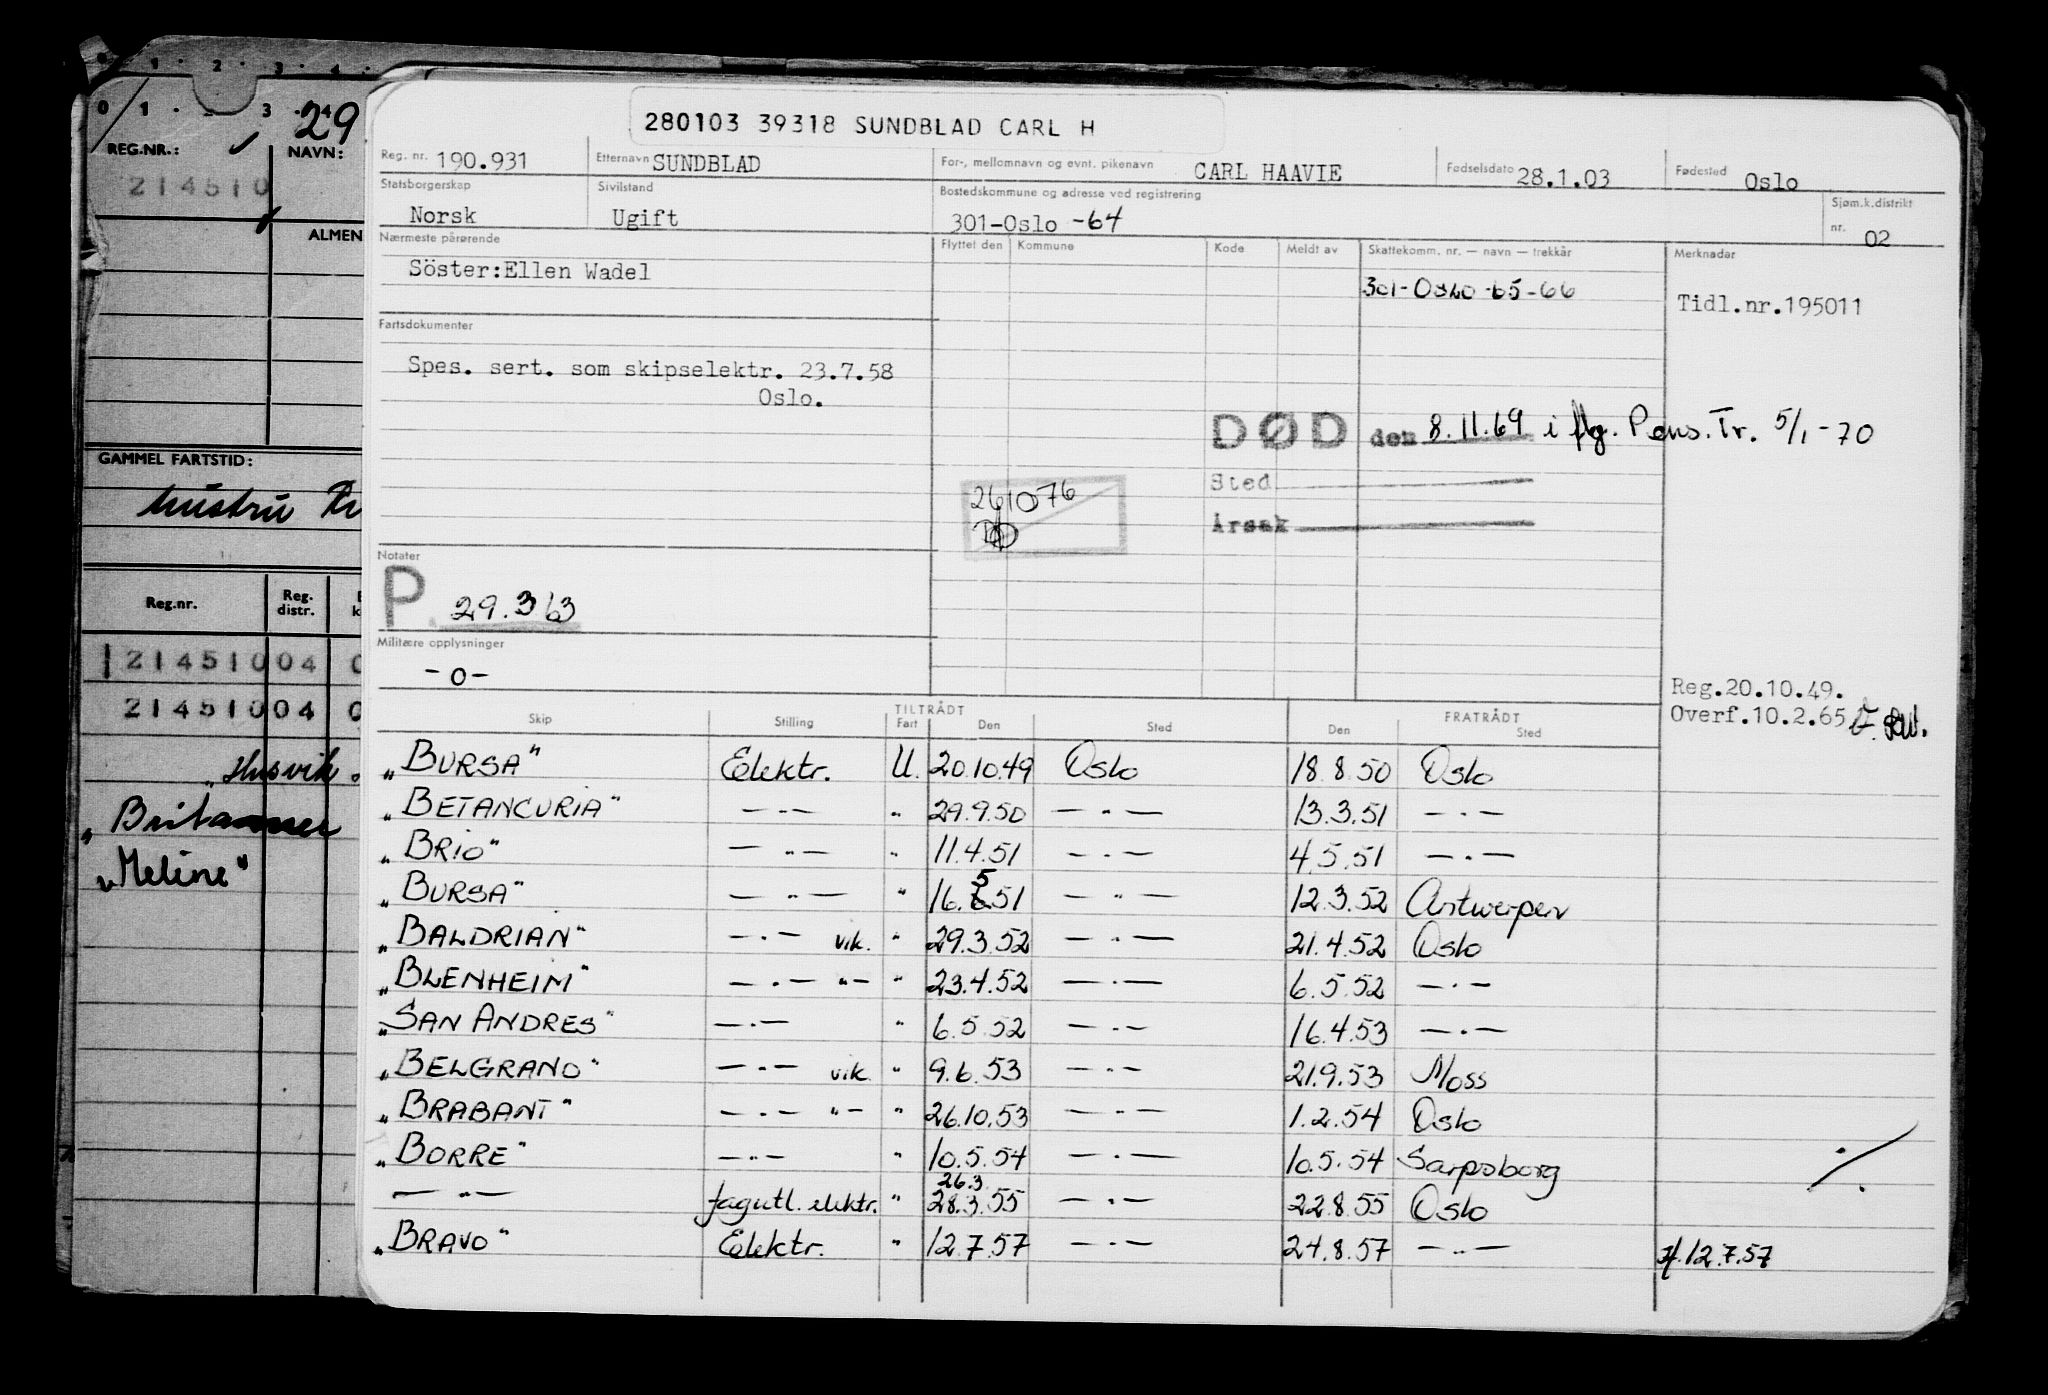 0 1 2 3 4
0 1 3 4
29
REG.NR.: NAVN:
214510
ALMEN
GAMMEL FARTSTID:
Reg.nr. Reg. distr.
21451004 0
21451004 0
"Husvik
"Meline"
280103 39318 SUNDBLAD CARL H
Reg. nr. 190.931 Etternavn SUNDBLAD For-, mellomnavn og evnt. pikenavn CARL HAAVIE Fødselsdato 28.1.03 Fødested Oslo
Statsborgerskap Sivilstand Bostedskommune og adresse ved registrering Sjøm.k.distrikt
Norsk Ugift 301-Oslo -64 nr. 02
Nærmeste pårørende Flyttet den Kommune Kode Meldt av Skattekomm. nr. — navn — trekkår Merknader
Söster:Ellen Wadel
301-Oslo-65-66
Tidl.nr.195011
Fartsdokumenter
Spes. sert. som skipselektr. 23.7.58
Oslo.
DØD den 8.11.69 i flg. Pens.Tr. 5/1-70
Sted
261076
Årsak
Notater
P. 29.3 63
Militære opplysninger
-0-
Reg.20.10.49.
Overf.10.2.65
Skip Stilling TILTRÅDT Fart Den Sted FRATRÅDT Den Sted
"BURSA" Elektr. U. 20.10.49 Oslo 18.8.50 Oslo
"BETANCURIA" —"— " 29.9.50 —"— 13.3.51 —"—
"BRIO" —"— " 11.4.51 —"— 4.5.51 —"—
"BURSA" —"— " 16.5.51 —"— 12.3.52 Antwerpen
"BALDRIAN" —"— vik. " 29.3.52 —"— 21.4.52 Oslo
"BLENHEIM" —"— "— " 23.4.52 —"— 6.5.52 —"—
"SAN ANDRES" —"— " 6.5.52 —"— 16.4.53 —"—
"BELGRANO" —"— vik. " 9.6.53 —"— 21.9.53 Moss
"BRABANT" —"— "— " 26.10.53 —"— 1.2.54 Oslo
"BORRE" —"— " 10.5.54 —"— 10.5.54 Sarpsborg
26.3.
—"— fagutl. elektr. " 28.3.55 —"— 22.8.55 Oslo
"BRAVO" Elektr. " 12.7.57 —"— 24.8.57 —"— 12.7.57